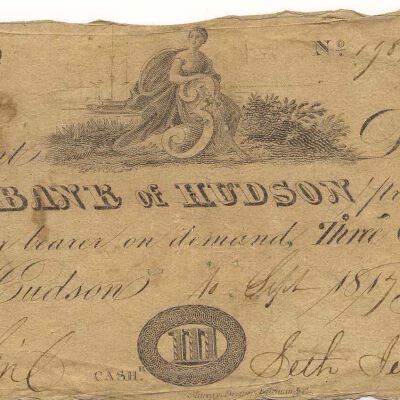 No 198
3
BANK of HUDSON
bearer on demand, Three
Hudson 10 Sept 1817
III
CASHR. Seth Je
Murray, Draper, Fairman &c.